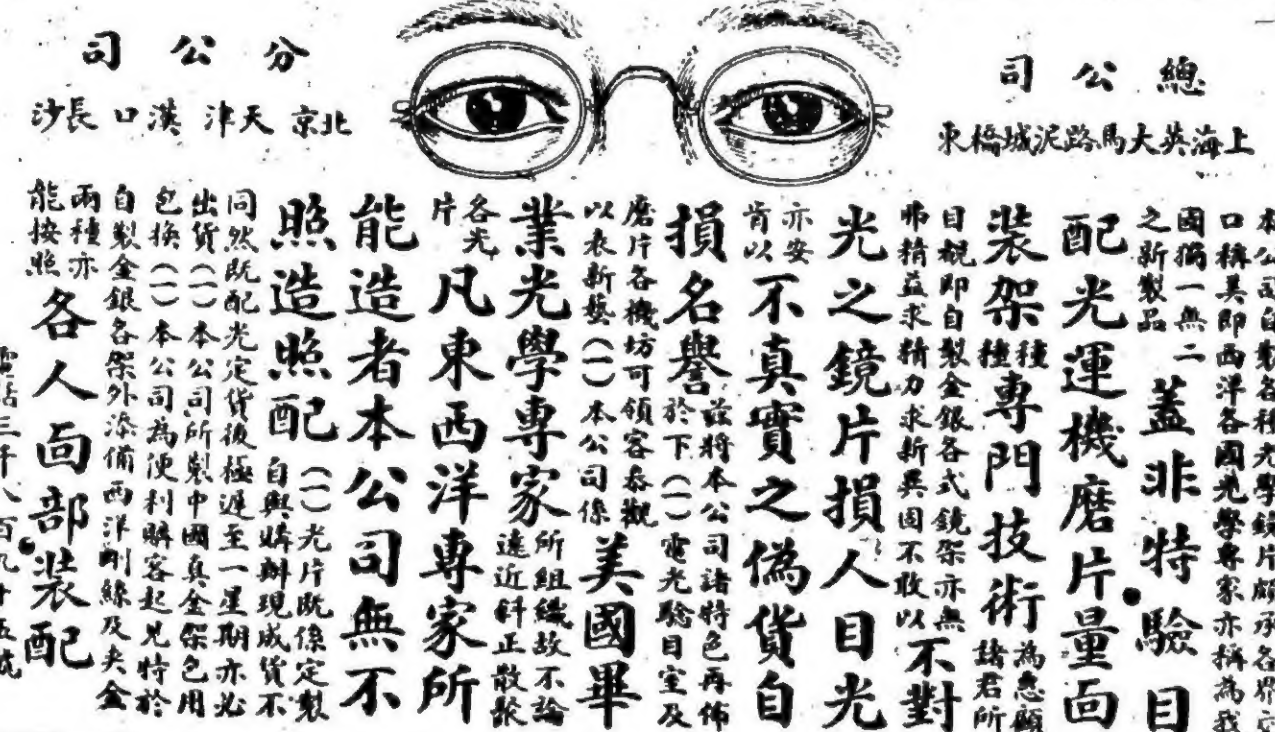 總公司
上海英大馬路泥城橋東
分公司
北京 天津 漢口 長沙
本公司自製各種光學鏡片頗承各界
口稱美即西洋各國光學專家亦稱為我
國獨一無二
之新製品
蓋非特驗目
配光運機磨片量面
裝架種種專門技術為惠顧
諸君所
目覩即自製金銀各式鏡架亦無
弗精益求精力求新異固不敢以
不對
光之鏡片損人目光
亦安
肯以
不真實之偽貨自
損名譽茲將本公司諸特色再佈
於下(一)電光驗目室及
磨片各機坊可領客叅觀
以表新藝(一)本公司係
美國畢
業光學專家所組織故不論
遠近斜正散聚
各光
片
凡東西洋專家所
能造者本公司無不
照造照配(一)光片既係定製
自與購辦現成貨不
同然既配光定貨後極遲至一星期亦必
出貨(一)本公司所製中國真金架包用
包換(一)本公司為便利購客起見特於
自製金銀各架外添備西洋刪絲及夾金
兩種亦
能按照
各人面部裝配
電話三千八百九十五號